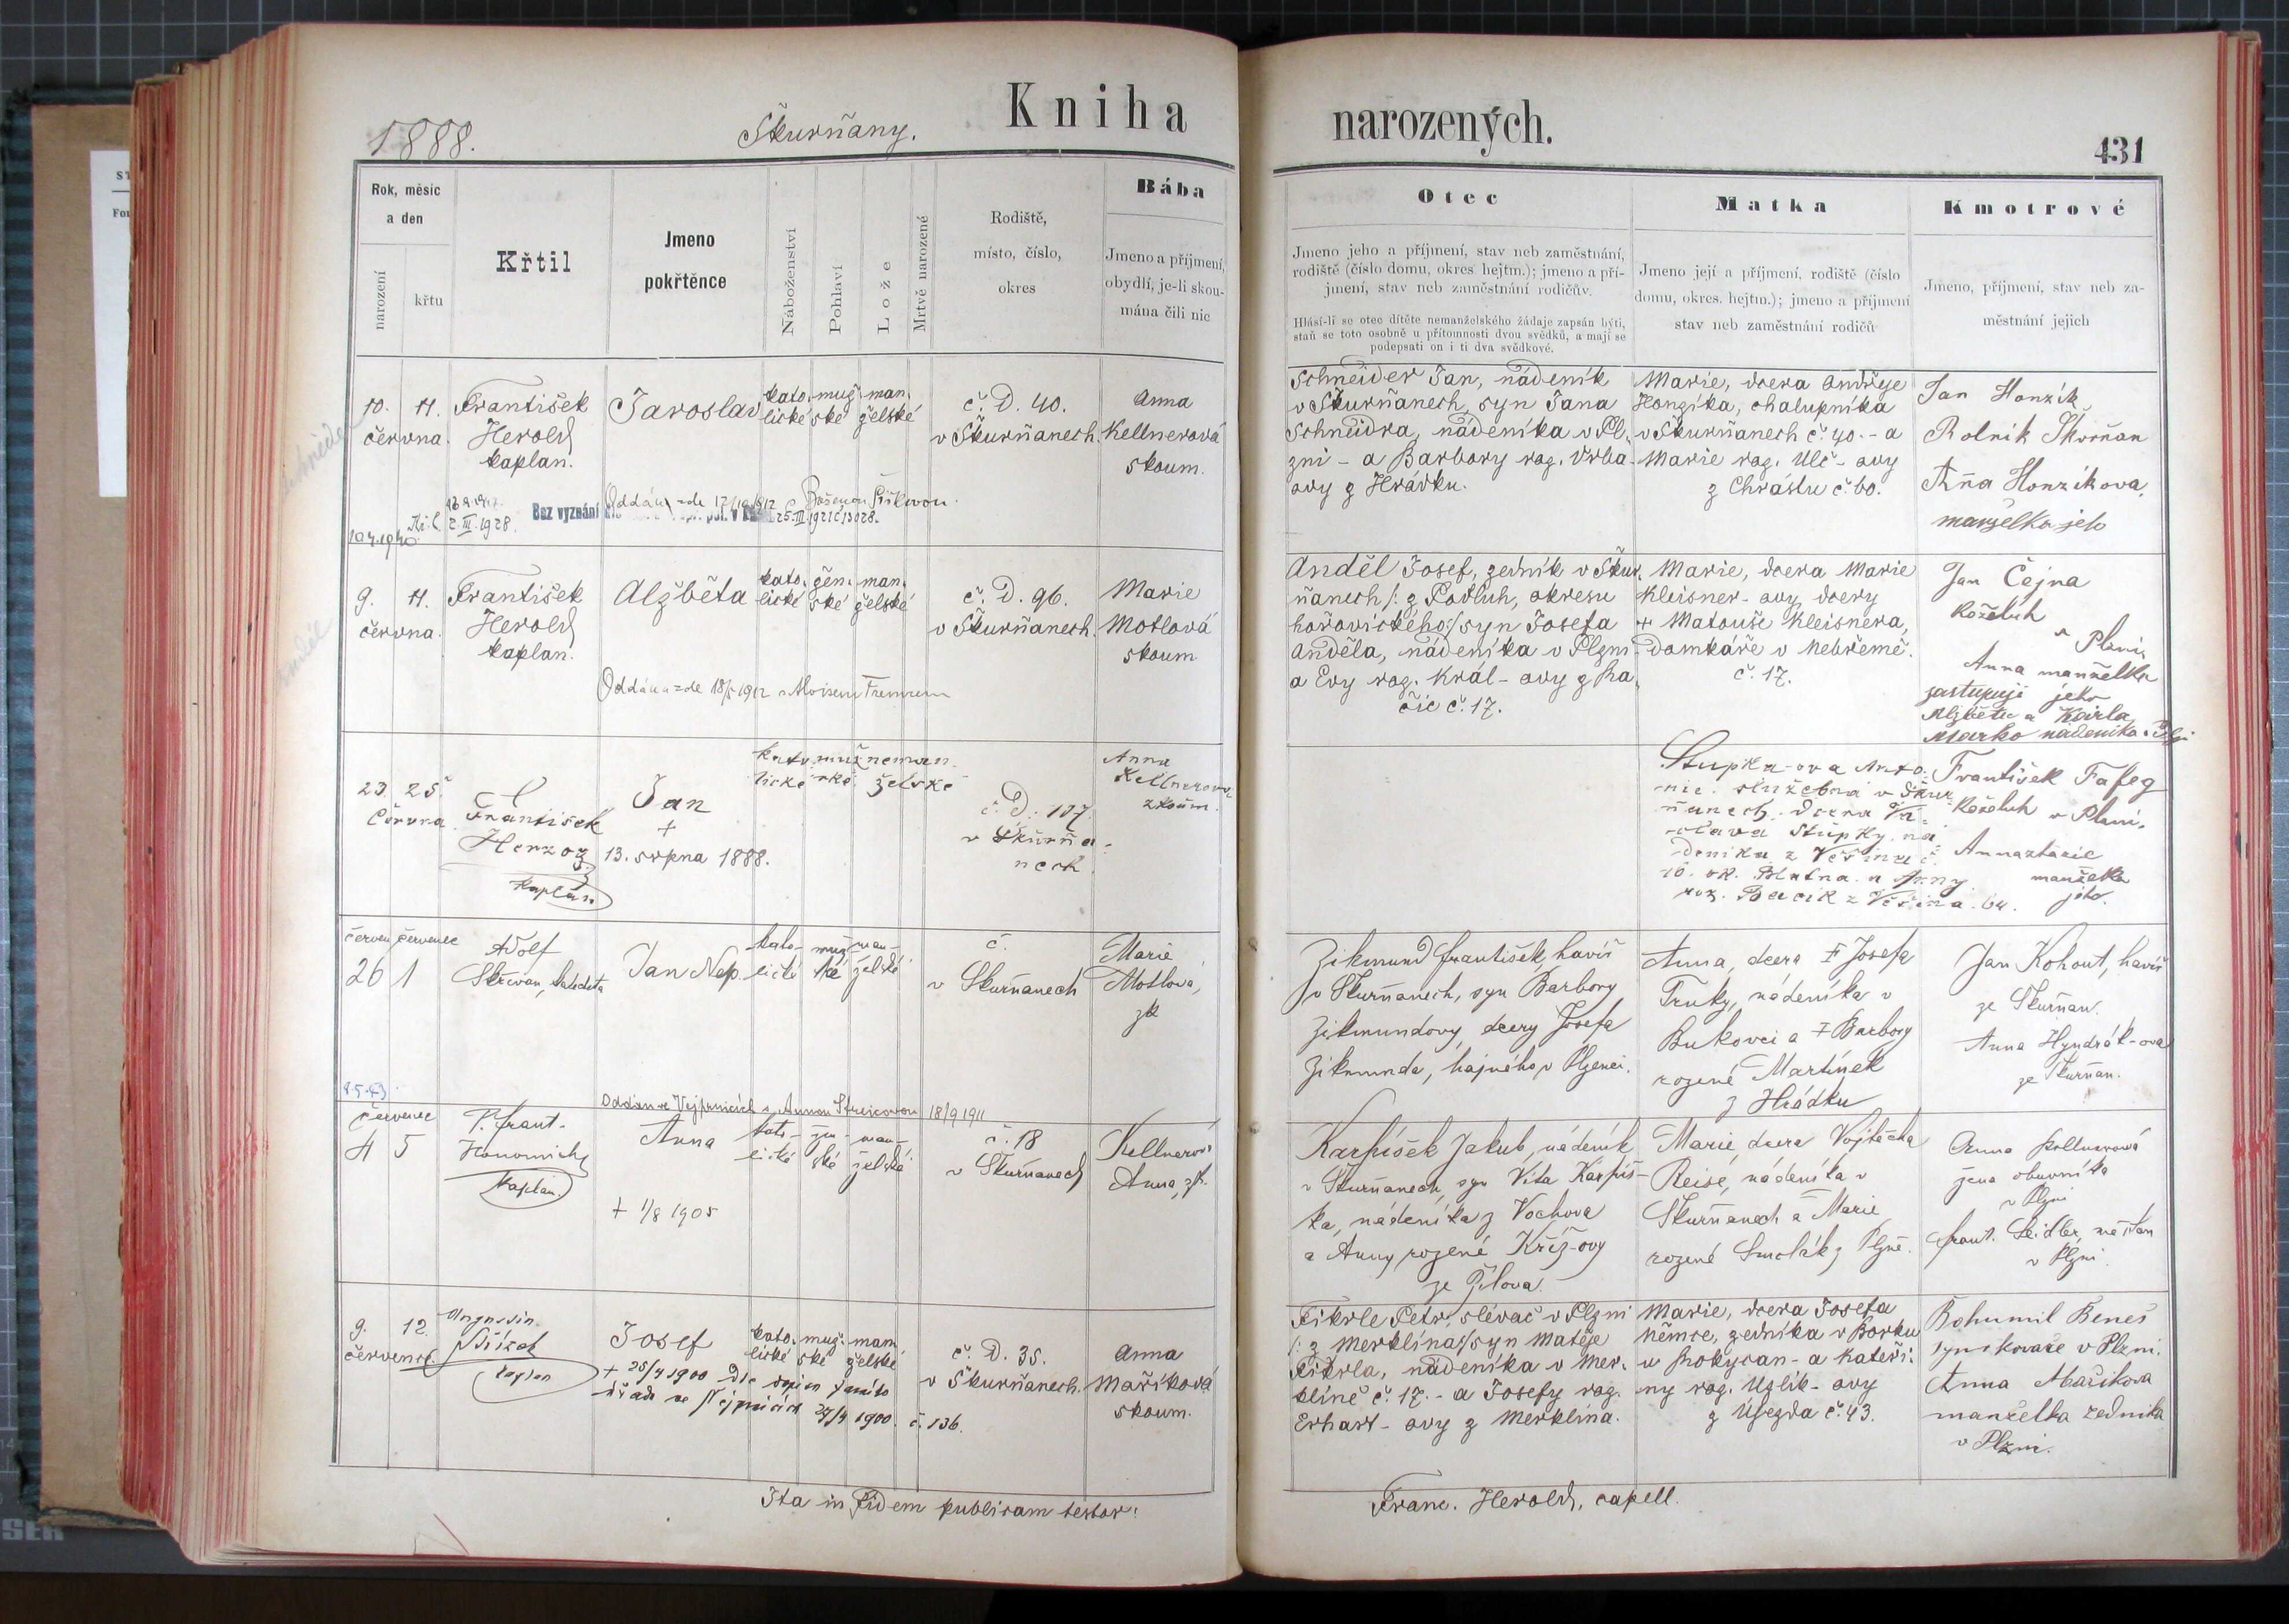 1888.
Škurňany.
Kniha narozených.
431
Rok, měsíc
a den
narození
křtu
Křtil
Jmeno
pokřtěnce
Náboženství
Pohlaví
Lože
Mrtvě narozené
Rodiště,
místo, číslo,
okres
Bába
Jmeno a příjmení,
obydlí, je-li skou-
mána čili nic
Otec
Jmeno jeho a příjmení, stav neb zaměstnání,
rodiště (číslo domu, okres hejtm.); jmeno a pří-
jmení, stav neb zaměstnání rodičův.
Hlásí-li se otec dítěte nemanželského žádaje zapsán býti,
staň se toto osobně u přítomnosti dvou svědků, a mají se
podepsati on i ti dva svědkové.
Matka
Jmeno její a příjmení, rodiště (číslo
domu, okres. hejtm.); jmeno a příjmení
stav neb zaměstnání rodičů
Kmotrové
Jmeno, příjmení, stav neb za-
městnání jejich
10. 11.
června.
František
Herold
kaplan.
Jaroslav
kato-
lické
muž-
ské
man-
želské
č. D. 40.
v Škurňanech.
Anna
Kellnerová
skoum.
2. III. 1928.
Bez vyznání
Oddán
Schneider Jan, nádeník
v Škurňanech, syn Jana
Schneidra, nádeníka v Pl-
zni - a Barbory roz. Vrba-
ovy z Hrádku.
Marie, dcera Andřeje
Honzíka, chalupníka
v Škurňanech č. 40. - a
Marie roz. Ulč - ovy
z Chrástu č. 60.
Jan Honzík,
Rolník Škvrňan
Anna Honzíkova,
manželka jeho
9. 11.
června.
František
Herold
kaplan.
Alžběta
kato-
lické
žen-
ské
man-
želské
č. D. 96.
v Škurňanech.
Marie
Motlová
skoum
Anděl Josef, zedník v Škur-
ňanech /: z Podluh, okresu
horovického:/ syn Josefa
Anděla, nádeníka v Plzni -
a Evy roz. Král - ovy z Ra-
čic č. 17.
Marie, dcera Marie
Kleisner - ovy, dcery
+ Matouše Kleisnera,
domkáře v Nebřemě.
č. 17.
Jan Čejna
koželuh
v Plzni,
Anna manželka
jeho
zastupují
Alžbětu a Karla
Marko nádeníka v Plzni
23. 25.
Června
František
Herzog
kaplán
Jan
+
13. srpna 1888.
kato-
lické
muž-
ské
neman-
želské
č. D. 107.
v Škurňa-
nech
Anna
Kellnerova
zkoum.
Stupka-ova Anto-
nie. služebná v Škur-
ňanech. dcera Vá-
clava Stupky, ná-
deníka z
10. ok. Blatna. a Anny
roz.
František
koželuh v Plzni.
manželka
jeho.
červen červenec
26 1
Adolf
Skřivan, katecheta
Jan Nep.
kato-
lické
muž-
ské
man-
želské
č.
v Skurňanech
Marie
Motlová,
zk
Zikmund František, havíř
v Skurňanech, syn Barbory
Zikmundovy, dcery Josefa
Zikmunda, hajného v Plzenci.
Anna, dcera ‡ Josefa
Trnky, nádeníka v
Bukovci a ‡ Barbory
rozené Martínek
z Hrádku
Jan Kohout, havíř
ze Skurňan.
Anna Hyndrák-ova
ze Skurňan.
Oddán ve Vejprnicích s Annou 18/9 1911
červenec
4 5
P. Frant.
kaplan.
Anna
kato-
lické
žen-
ské
man-
želské
+ 1/8 1905
č. 18
v Skurňanech
Kellnerová
Anna, zk.
Karpíšek Jakub, nádeník
v Skurňanech, syn Víta Karpíš-
ka, nádeníka z Vochova
a Anny rozené Kříž-ovy
ze Žilova.
Marie, dcera Vojtěcha
nádeníka v
Skurňanech a Marie
rozené Smolák z Plzně.
Anna Kellnerová
žena obuvníka
v Plzni
Frant. Seidler,
v Plzni.
9. 12.
července.
kaplan
Josef
kato-
lické
muž-
ské
man-
želské
+ 25/4 1900 Dle
27/4 1900. č. 136.
č. D. 35.
v Škurňanech.
Anna
Maříková
skoum.
Fikrle Petr, slévač v Plzni
/: z Merklína:/ syn Matěje
Fikrla, nádeníka v Mer-
klíně č. 17. - a Josefy roz.
Erhart - ovy z Merklína.
Marie, dcera Josefa
Němce, zedníka v Borku
u Rokycan - a Kateři-
ny roz. Uzlík - ovy
z Újezda č. 43.
Bohumil Beneš
syn kováře v Plzni.
Anna Maříkova
manželka zedníka
v Plzni.
Ita in fidem publicam testor:
Franc. Herold, capell.